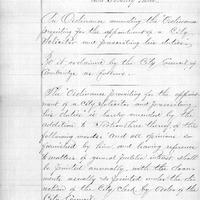 An Ordinance amending the Ordinance
providing for the appointment of a City
Solicitor and prescribing his duties.
Be it ordained by the City Council of
Cambridge as follows.
The Ordinance providing for the appoint-
ment of a City Solicitor and prescribing
his duties is hereby amended by the
addition to thereof of the
following words: And all opinions so
furnished by him and having reference
to matters of general public interest shall
be printed annually, with the docu-
ments usually so printed under the
direction of the City Clerk by order of the
City Council.